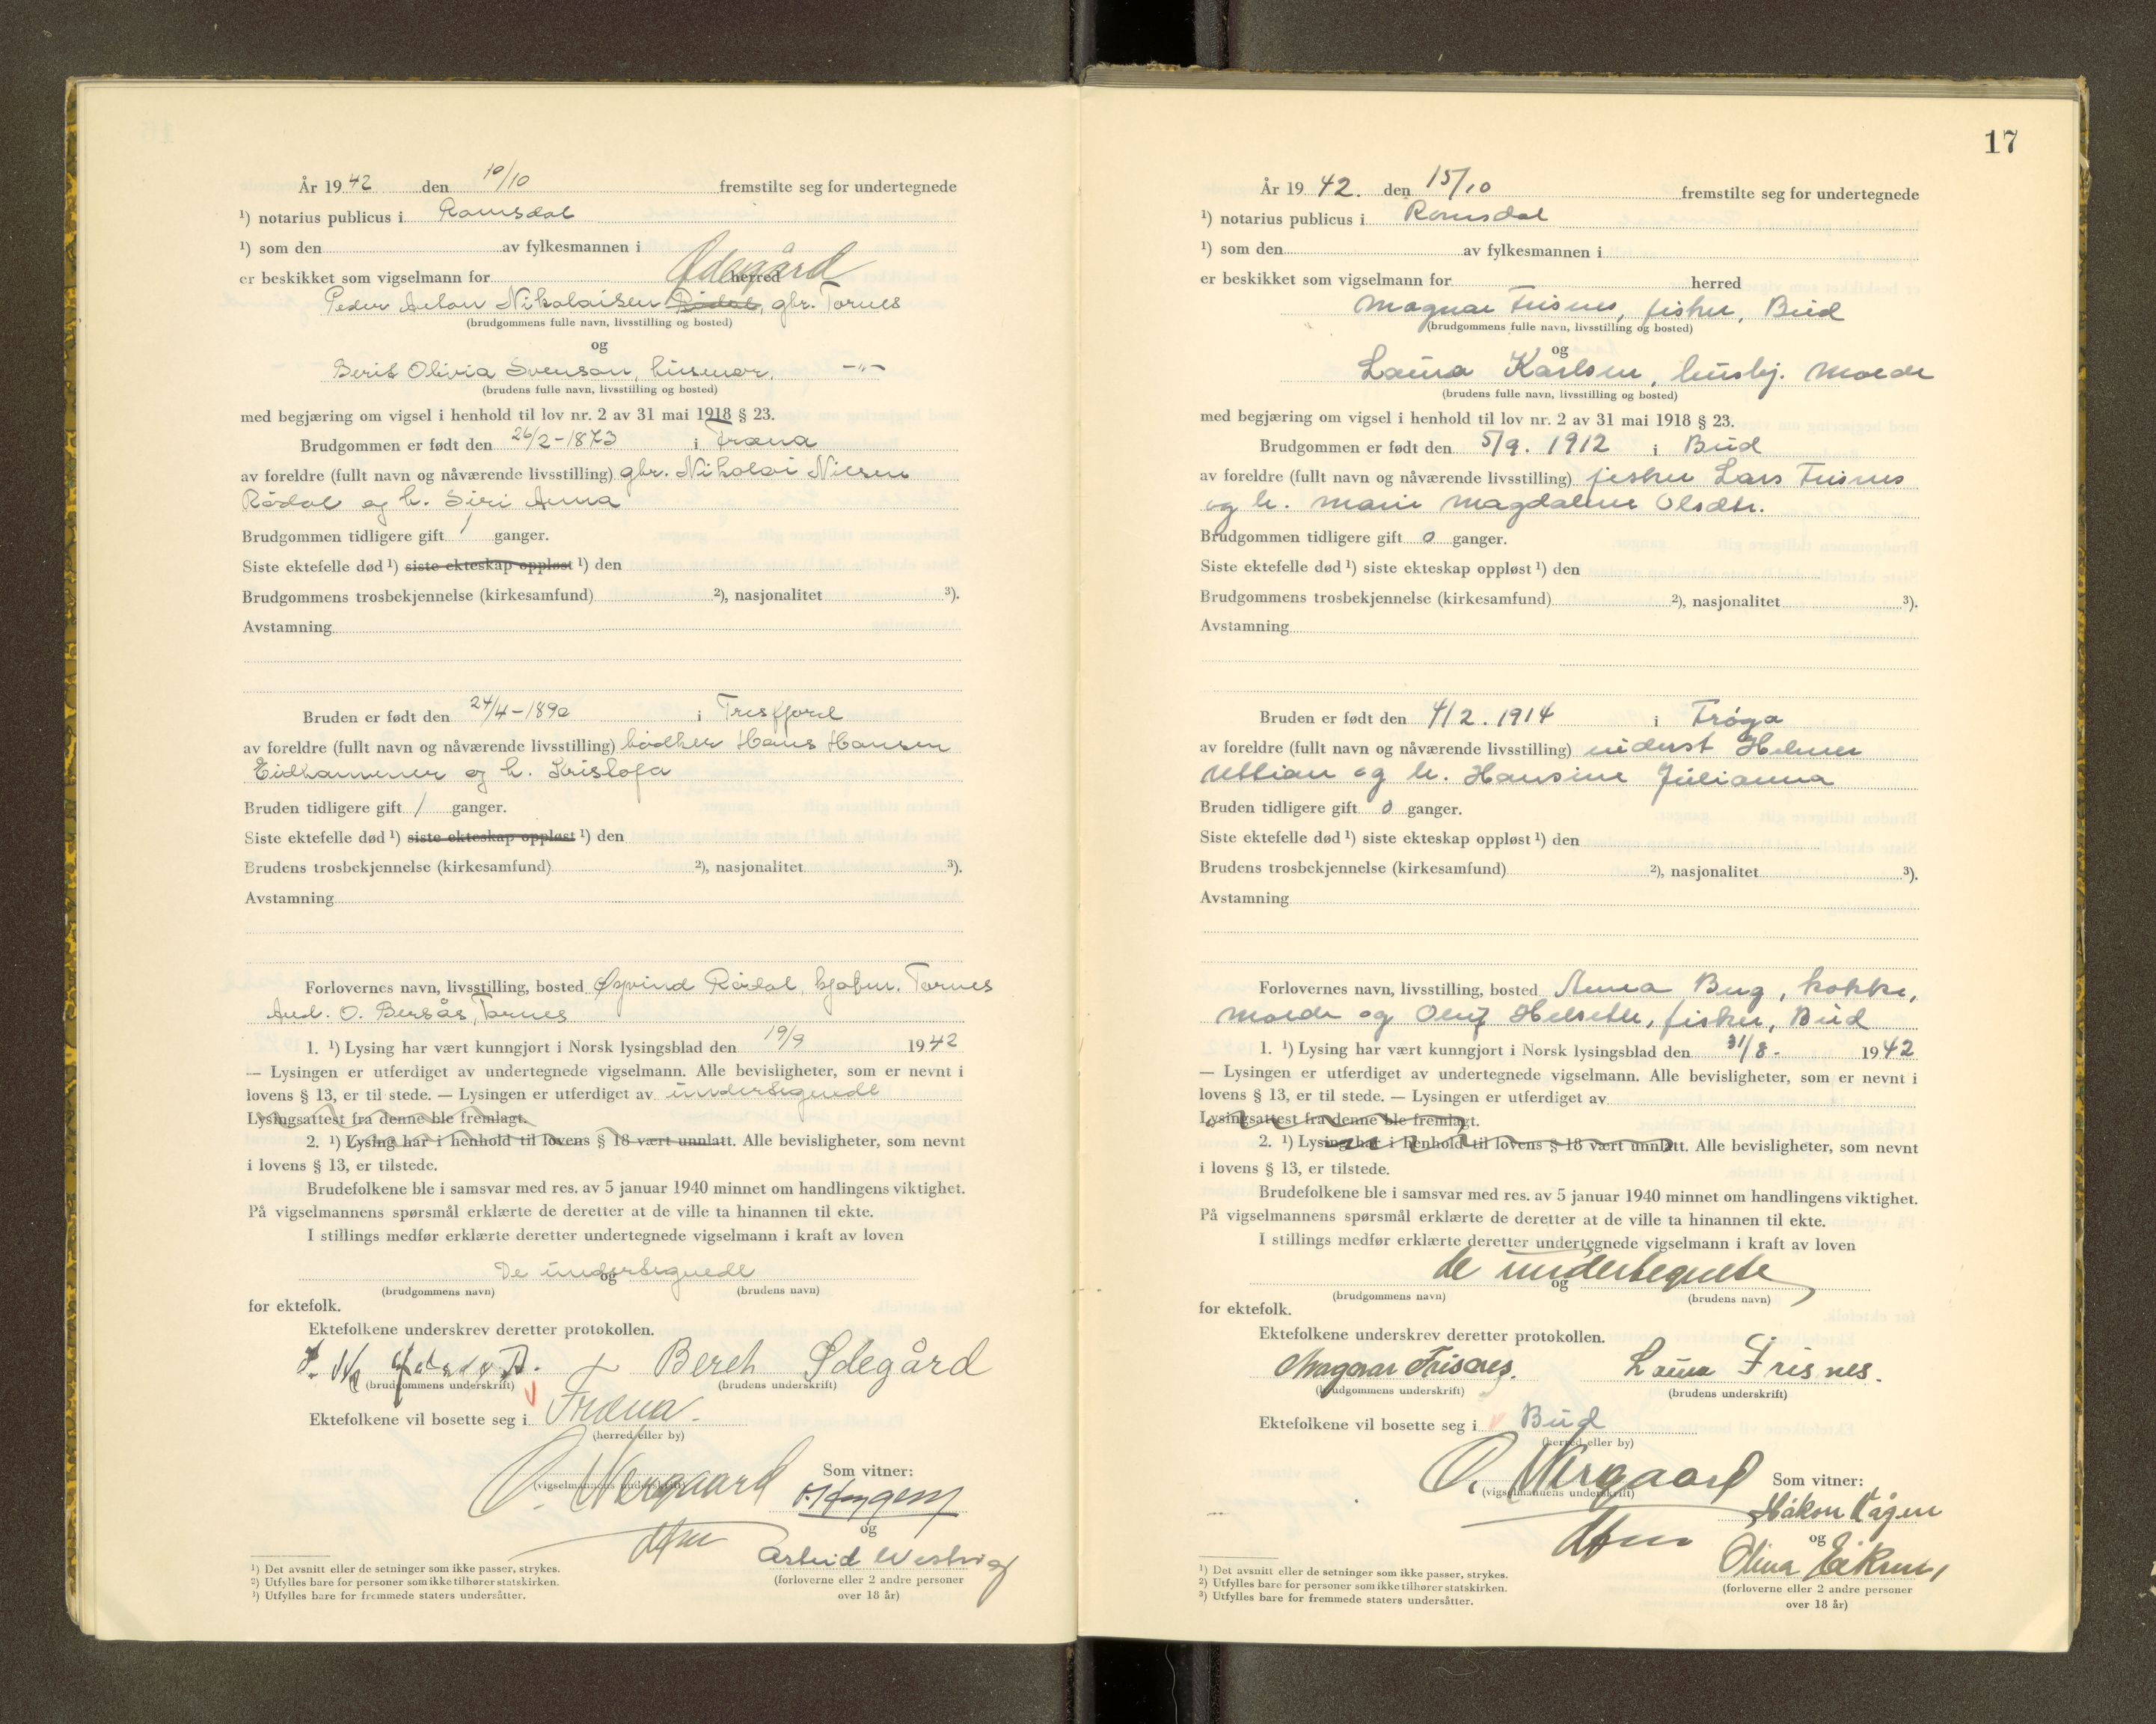 År 19 42 den 10/10 fremstilte seg for undertegnede
¹) notarius publicus i Romsdal
¹) som den av fylkesmannen i
er beskikket som vigselmann for herred
Ødegård
Peder Anton Nikolaisen Rødal, gbr. Tornes
(brudgommens fulle navn, livsstilling og bosted)
og
Berit Olivia Svenson, husmor, -"-
(brudens fulle navn, livsstilling og bosted)
med begjæring om vigsel i henhold til lov nr. 2 av 31 mai 1918 § 23.
Brudgommen er født den 26/2-1873 i Fræna
av foreldre (fullt navn og nåværende livsstilling) gbr. Nikolai Nilsen
Rødal og h. Siri Anna
Brudgommen tidligere gift 1 ganger.
Siste ektefelle død ¹) siste ekteskap oppløst ¹) den
Brudgommens trosbekjennelse (kirkesamfund) ²), nasjonalitet ³).
Avstamning
Bruden er født den 24/4-1890 i Tresfjord
av foreldre (fullt navn og nåværende livsstilling) bødker Hans Hansen
Eidhammer og h. Kristofa
Bruden tidligere gift 1 ganger.
Siste ektefelle død ¹) siste ekteskap oppløst ¹) den
Brudens trosbekjennelse (kirkesamfund) ²), nasjonalitet ³).
Avstamning
Forlovernes navn, livsstilling, bosted Øyvind Rødal, kjøbm. Tornes
And. O. Bersås, Tornes
1. ¹) Lysing har vært kunngjort i Norsk lysingsblad den 19/9 19 42
— Lysingen er utferdiget av undertegnede vigselmann. Alle bevisligheter, som er nevnt i
lovens § 13, er til stede. — Lysingen er utferdiget av undertegnede
Lysingsattest fra denne ble fremlagt.
2. ¹) Lysing har i henhold til lovens § 18 vært unnlatt. Alle bevisligheter, som nevnt
i lovens § 13, er tilstede.
Brudefolkene ble i samsvar med res. av 5 januar 1940 minnet om handlingens viktighet.
På vigselmannens spørsmål erklærte de deretter at de ville ta hinannen til ekte.
I stillings medfør erklærte deretter undertegnede vigselmann i kraft av loven
De undertegnede
og
(brudgommens navn) (brudens navn)
for ektefolk.
Ektefolkene underskrev deretter protokollen.
Bereh Ødegård
(brudgommens underskrift) (brudens underskrift)
Ektefolkene vil bosette seg i Fræna.
(herred eller by)
O. Nergaard
(vigselmannens underskrift)
Som vitner:
og
Astrid Westvig
(forloverne eller 2 andre personer
over 18 år)
¹) Det avsnitt eller de setninger som ikke passer, strykes.
²) Utfylles bare for personer som ikke tilhører statskirken.
³) Utfylles bare for fremmede staters undersåtter.
17
År 19 42. den 15/10 fremstilte seg for undertegnede
¹) notarius publicus i Romsdal
¹) som den av fylkesmannen i
er beskikket som vigselmann for herred
Magnar Frisnes, fisker, Bud
(brudgommens fulle navn, livsstilling og bosted)
og
Laura Karlsen, hushj. Molde
(brudens fulle navn, livsstilling og bosted)
med begjæring om vigsel i henhold til lov nr. 2 av 31 mai 1918 § 23.
Brudgommen er født den 5/9. 1912 i Bud
av foreldre (fullt navn og nåværende livsstilling) fisker Lars Frisnes
og h. Marie Magdalene Olsdtr.
Brudgommen tidligere gift 0 ganger.
Siste ektefelle død ¹) siste ekteskap oppløst ¹) den
Brudgommens trosbekjennelse (kirkesamfund) ²), nasjonalitet ³).
Avstamning
Bruden er født den 4/2. 1914 i Frøya
av foreldre (fullt navn og nåværende livsstilling) inderst Helmer
Uttian og h. Hansine Julianna
Bruden tidligere gift 0 ganger.
Siste ektefelle død ¹) siste ekteskap oppløst ¹) den
Brudens trosbekjennelse (kirkesamfund) ²), nasjonalitet ³).
Avstamning
Forlovernes navn, livsstilling, bosted Anna Berg, kokke,
Molde og Oluf Helseth, fisker, Bud
1. ¹) Lysing har vært kunngjort i Norsk lysingsblad den 31/8- 19 42
— Lysingen er utferdiget av undertegnede vigselmann. Alle bevisligheter, som er nevnt i
lovens § 13, er til stede. — Lysingen er utferdiget av
Lysingsattest fra denne ble fremlagt.
2. ¹) Lysing har i henhold til lovens § 18 vært unnlatt. Alle bevisligheter, som nevnt
i lovens § 13, er tilstede.
Brudefolkene ble i samsvar med res. av 5 januar 1940 minnet om handlingens viktighet.
På vigselmannens spørsmål erklærte de deretter at de ville ta hinannen til ekte.
I stillings medfør erklærte deretter undertegnede vigselmann i kraft av loven
de undertegnete
og
(brudgommens navn) (brudens navn)
for ektefolk.
Ektefolkene underskrev deretter protokollen.
Magnar Frisnes. Laura Frisnes.
(brudgommens underskrift) (brudens underskrift)
Ektefolkene vil bosette seg i Bud
(herred eller by)
O. Nergaard
(vigselmannens underskrift)
Som vitner:
Håkon Kågen
og
Olina Eikrem
(forloverne eller 2 andre personer
over 18 år)
¹) Det avsnitt eller de setninger som ikke passer, strykes.
²) Utfylles bare for personer som ikke tilhører statskirken.
³) Utfylles bare for fremmede staters undersåtter.